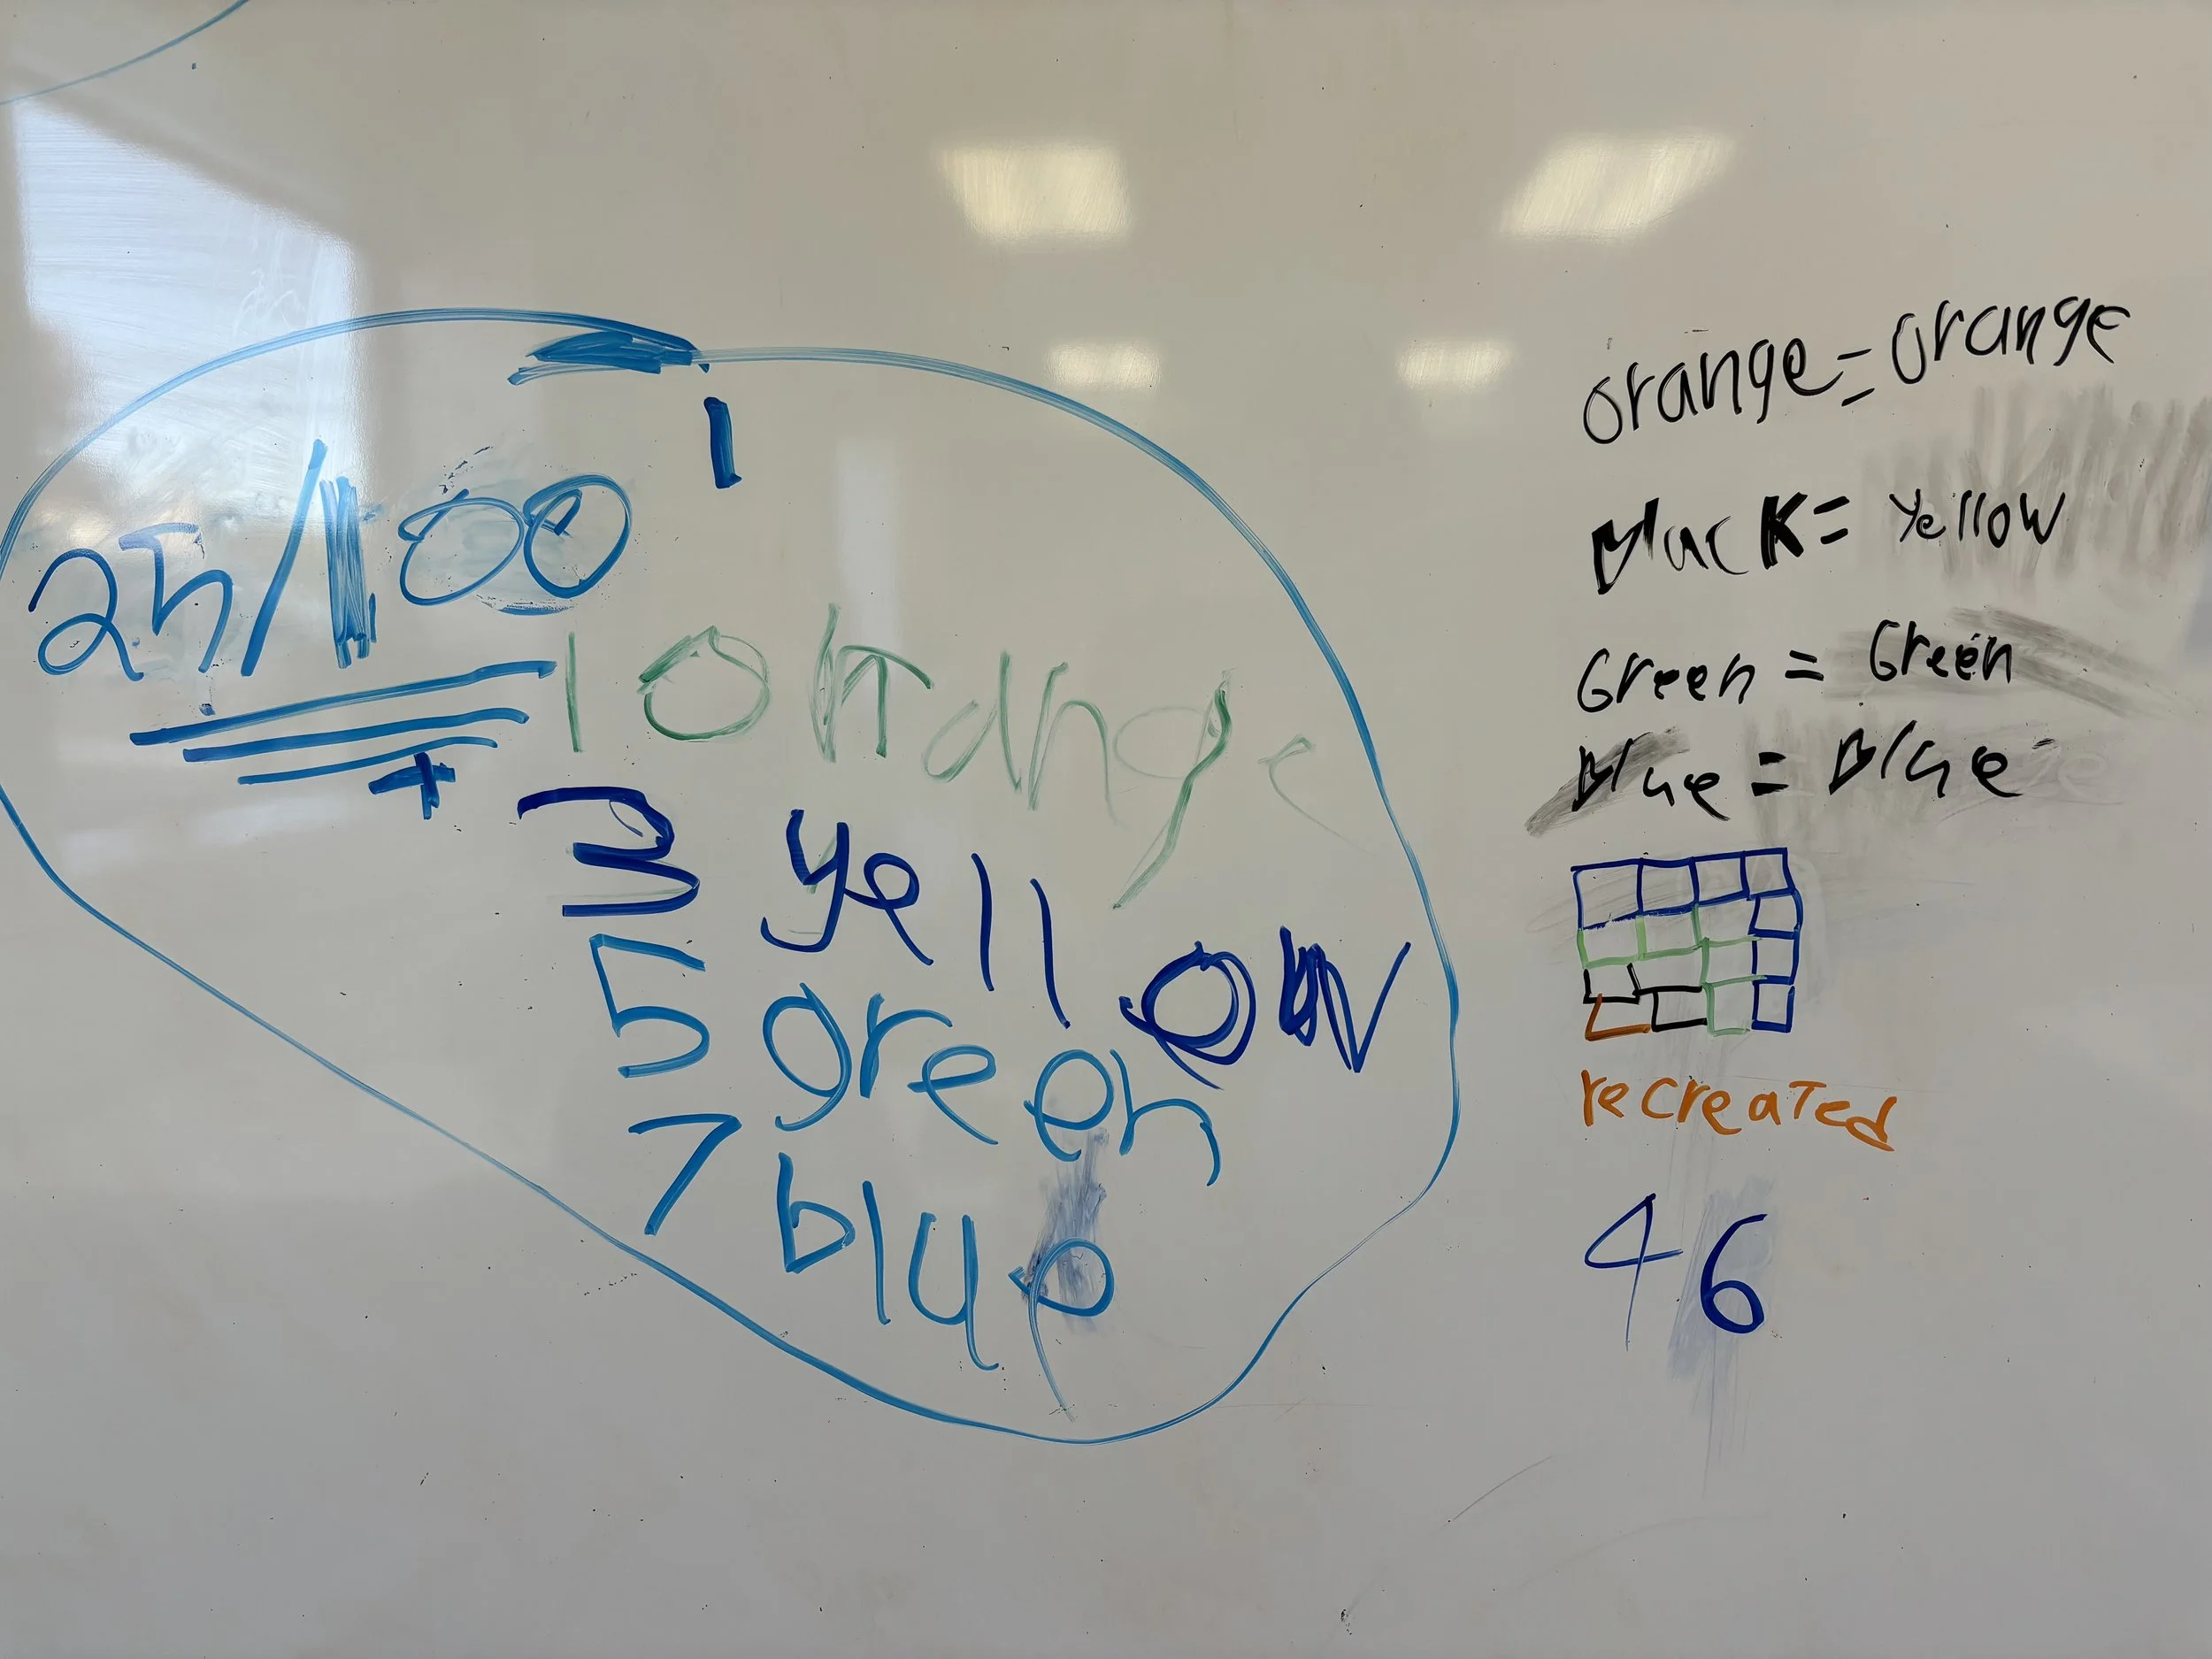 1
25/100
1 Orange
3 yellow
5 green
7 blue
orange = orange
Black = yellow
Green = Green
Blue = Blue
recreated
46